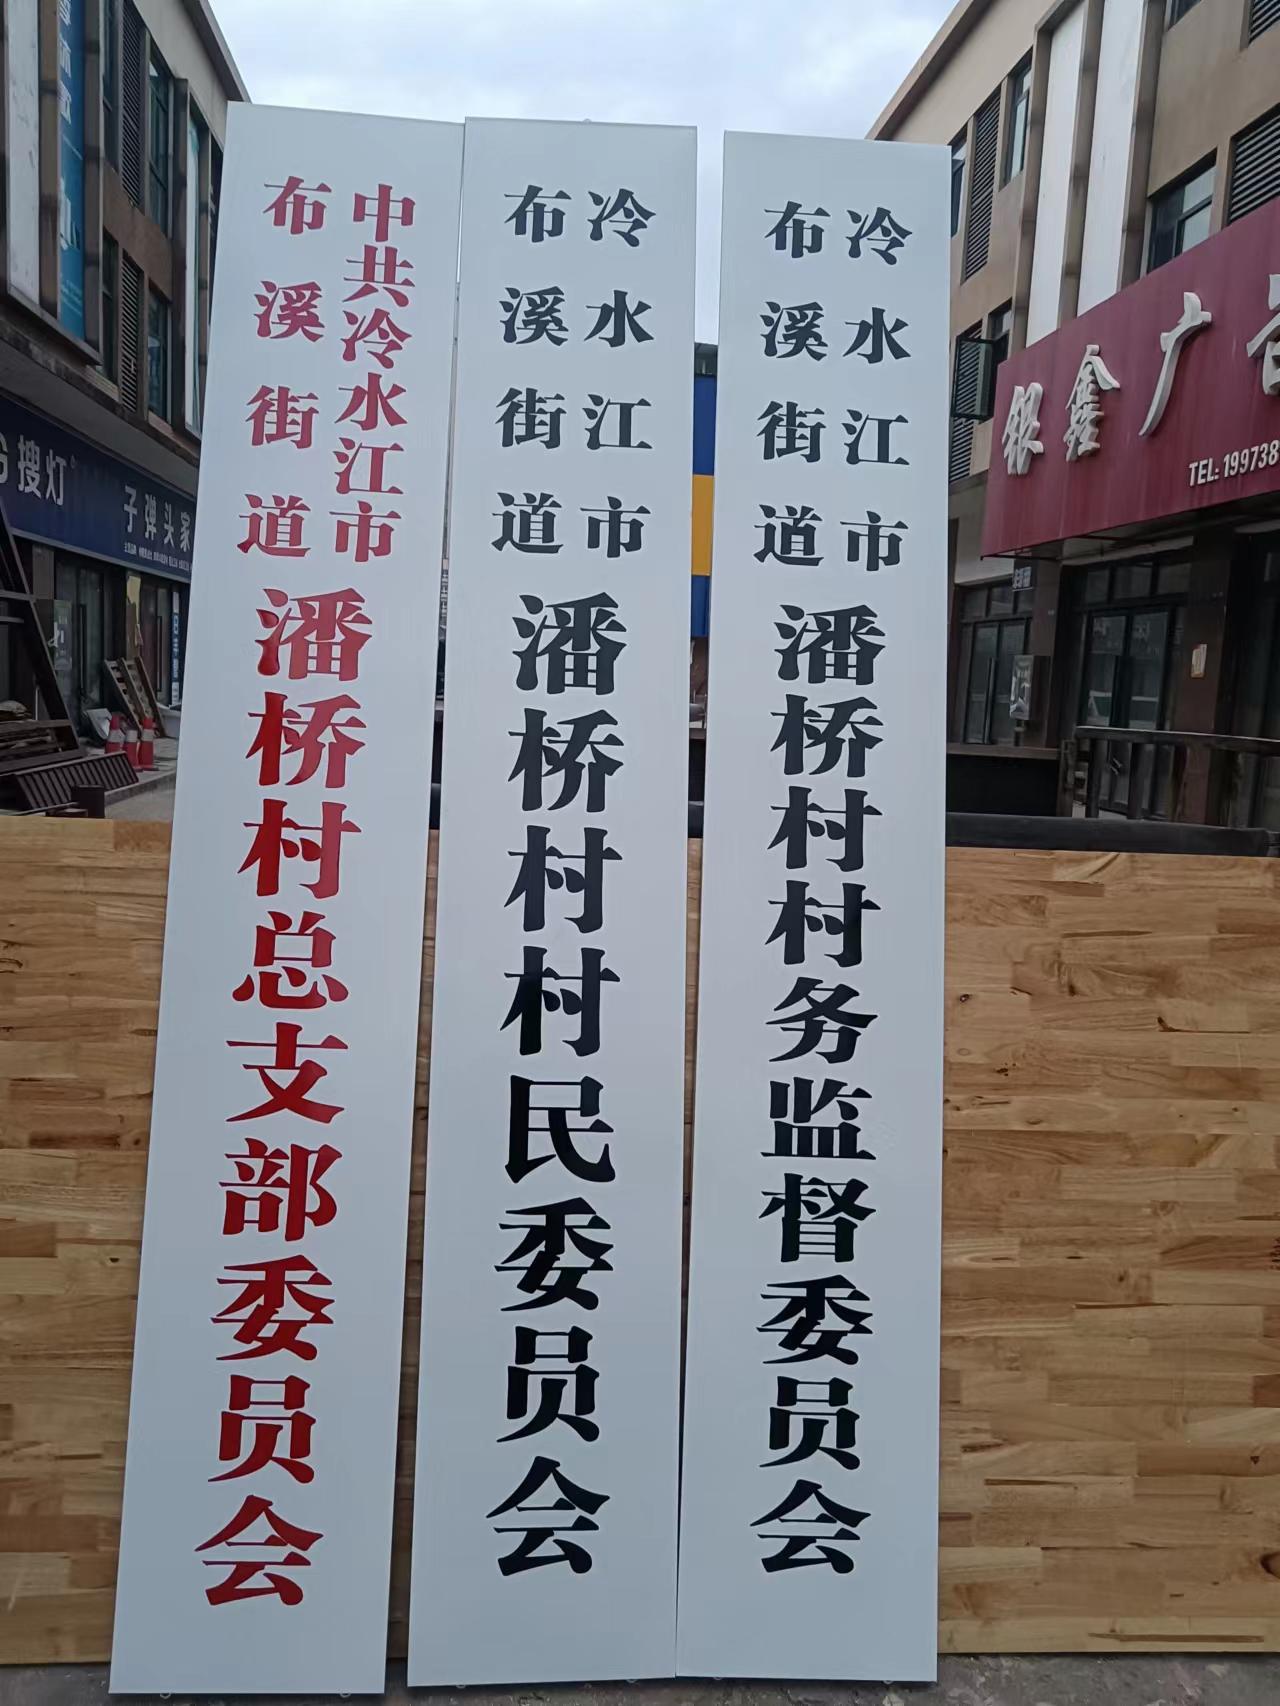 中共冷水江市
布溪街道
潘桥村总支部委员会
冷水江市
布溪街道
潘桥村村民委员会
冷水江市
布溪街道
潘桥村村务监督委员会
搜灯
子弹头家
银鑫广告
TEL: 199738